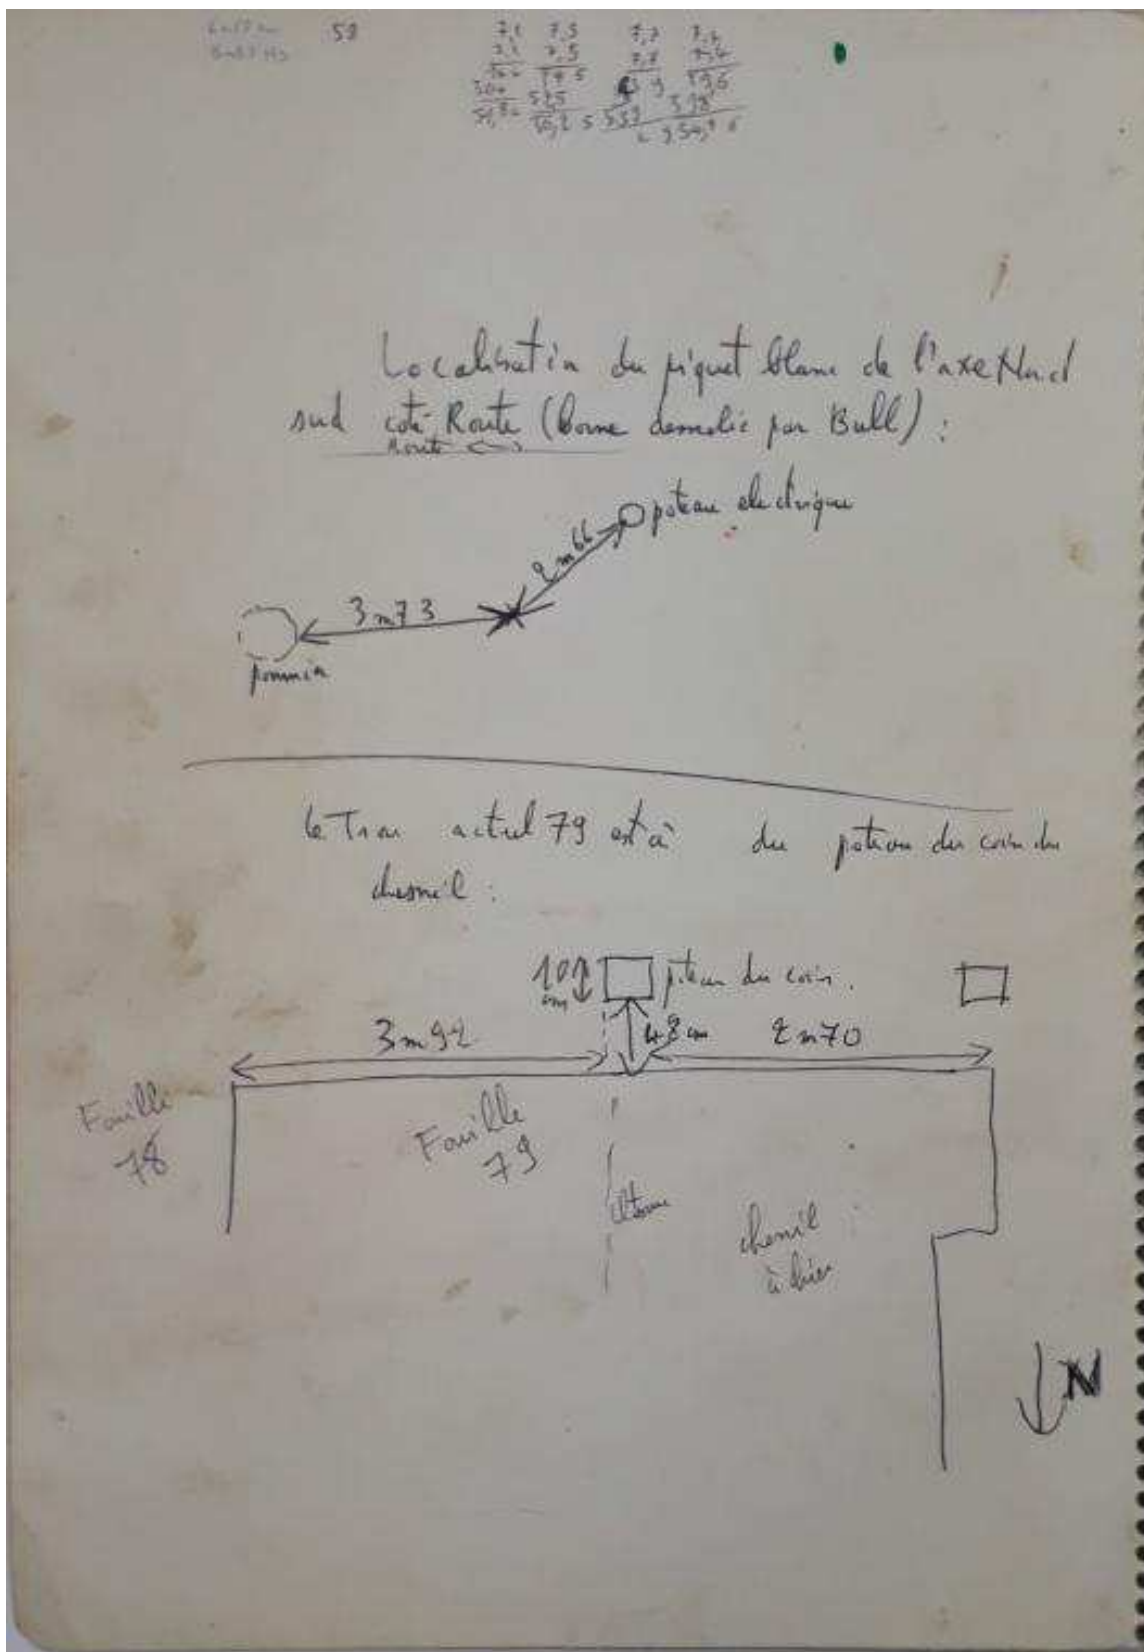 58
7,5
7,5
Localisation du piquet blanc de l'axe Nord
sud coté Route (borne demolie par Bull) :
Route
poteau electrique
2m66
3m73
pommier
le Trou actuel 79 est à du poteau du coin du
chesnil :
10
cm
poteau du coin.
3m92
48 cm
2m70
Fouille
78
Fouille
79
chenil
à chien
N